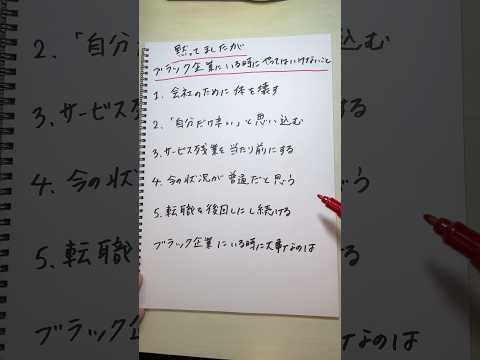 黙ってましたが
ブラック企業にいる時にやってはいけないこと
1. 会社のために体を壊す
2. 「自分だけ辛い」と思い込む
3. サービス残業を当たり前にする
4. 今の状況が普通だと思う
5. 転職を後回しにし続ける
ブラック企業にいる時に大事なのは